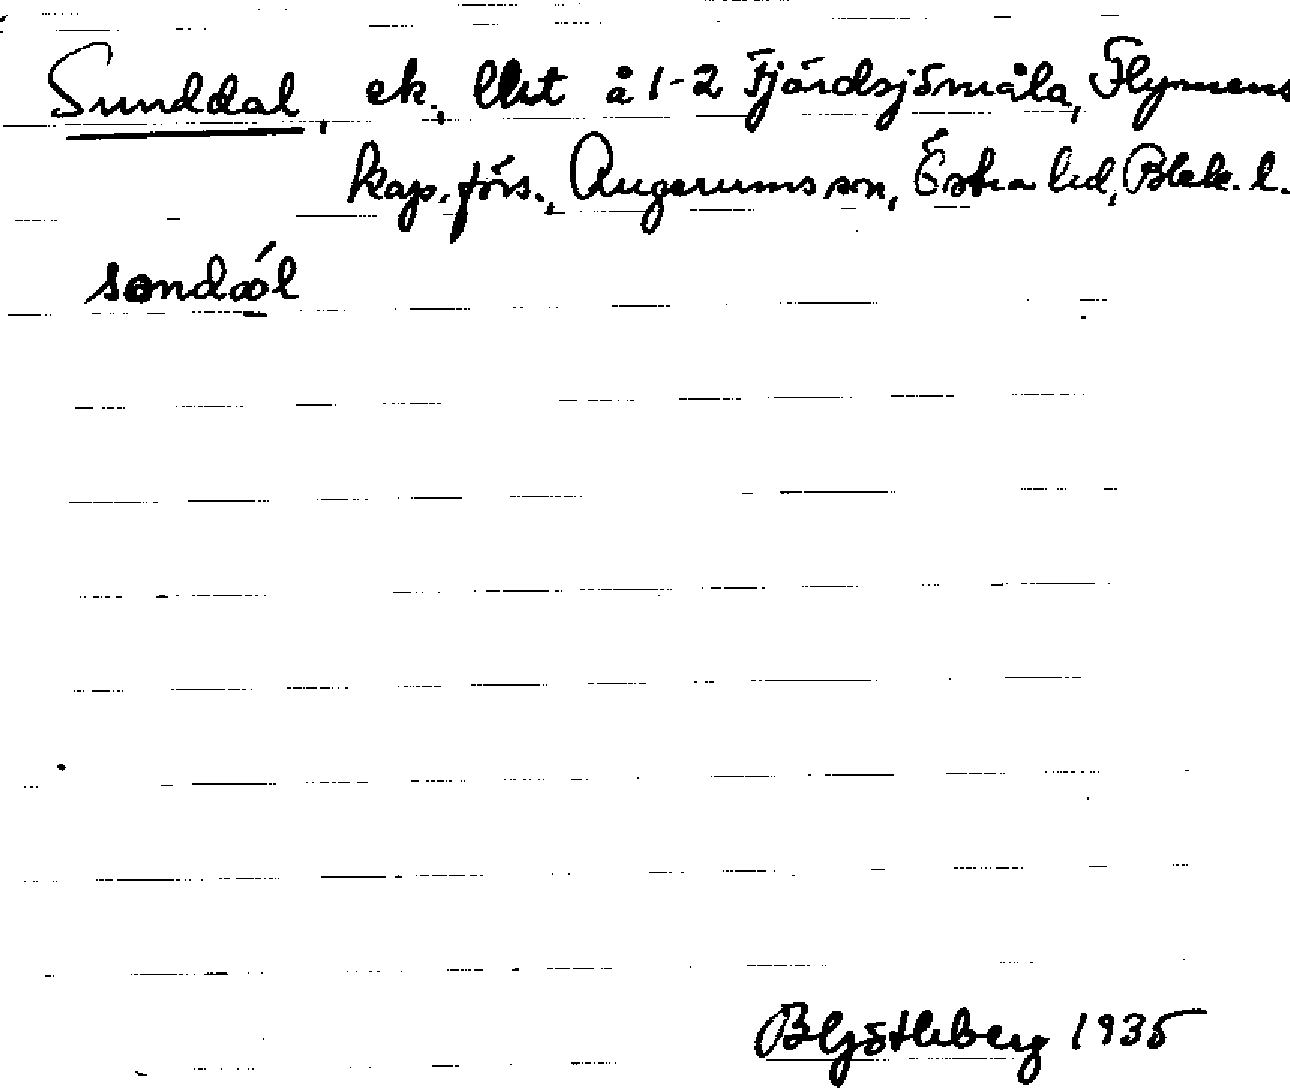 Sunddal, ek., litt å 1-2 Fjärdsjömåla, Flymens
kap. förs., Augerums sn, Östra hd, Blek. l.
sondál
B Götlberg 1935